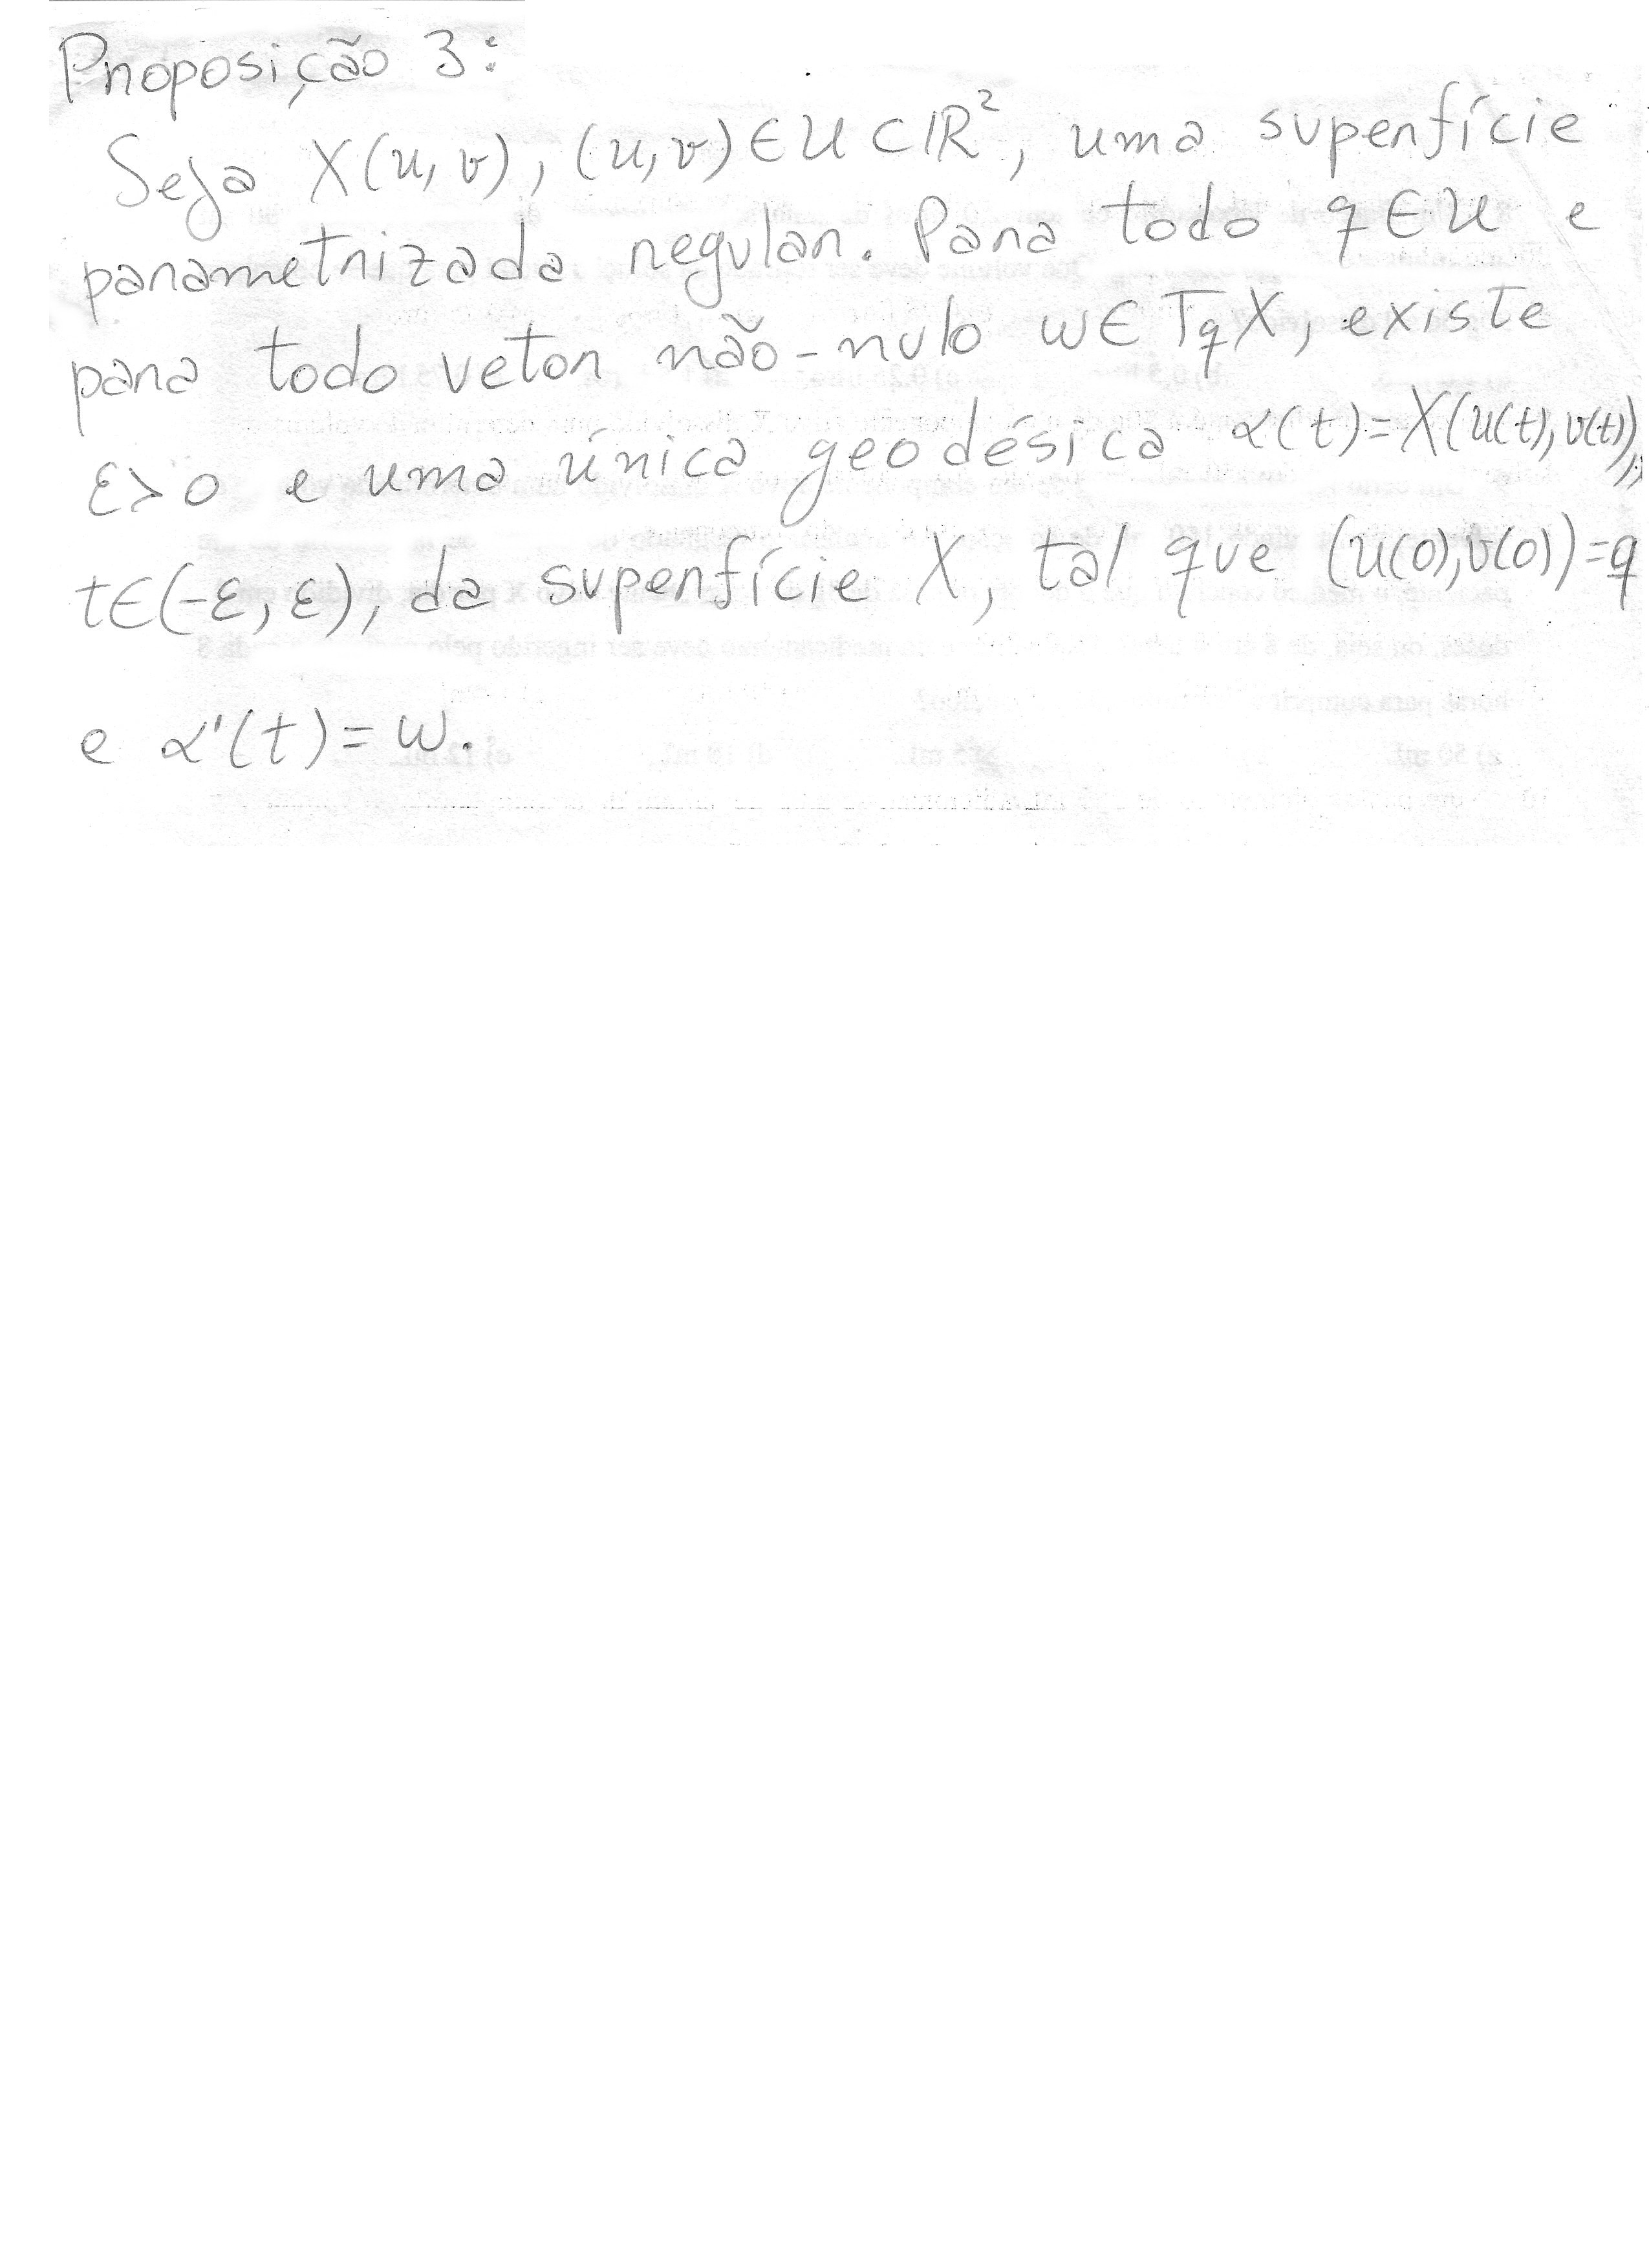 Proposição 3:
Seja X(u, v), (u, v) ∈ U ⊂ IR², uma superfície
parametrizada regular. Para todo q ∈ U e
para todo vetor não-nulo w ∈ TqX, existe
ε > 0 e uma única geodésica α(t) = X(u(t), v(t)),
t ∈ (-ε, ε), da superfície X, tal que (u(0), v(0)) = q
e α'(t) = w.